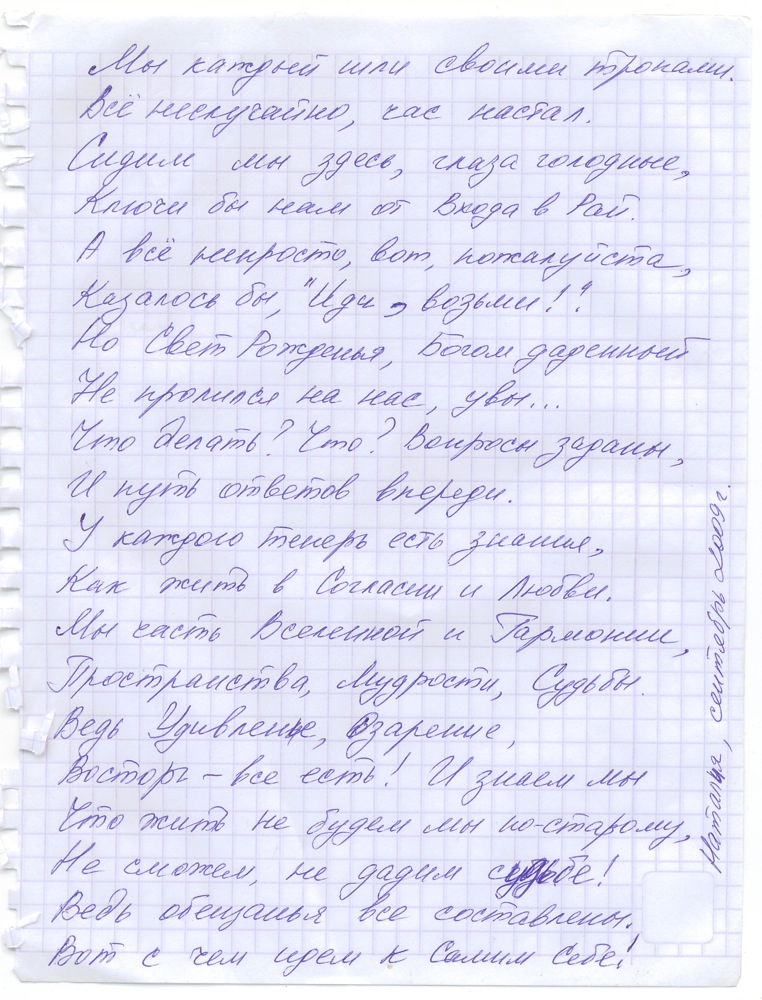 Мы каждый шли своими тропами.
Всё неслучайно, час настал.
Сидим мы здесь, глаза голодные,
Ключи бы нам от Входа в Рай.
А всё непросто, вот, пожалуйста,
Казалось бы, "Иди, возьми!".
Но Свет Рожденья, Богом даденный
Не пролился на нас, увы...
Что делать? Что? Вопросы заданы,
И путь ответов впереди.
У каждого теперь есть знания,
Как жить в Согласии и Любви.
Мы часть Вселенной и Гармонии,
Пространства, Мудрости, Судьбы.
Ведь Удивленье, Озарение,
Восторг – все есть! И знаем мы
Что жить не будем мы по-старому,
Не сможем, не дадим судьбе!
Ведь обещанья все составлены.
Вот с чем идем к Самим Себе!
Наталья, сентябрь 2009г.